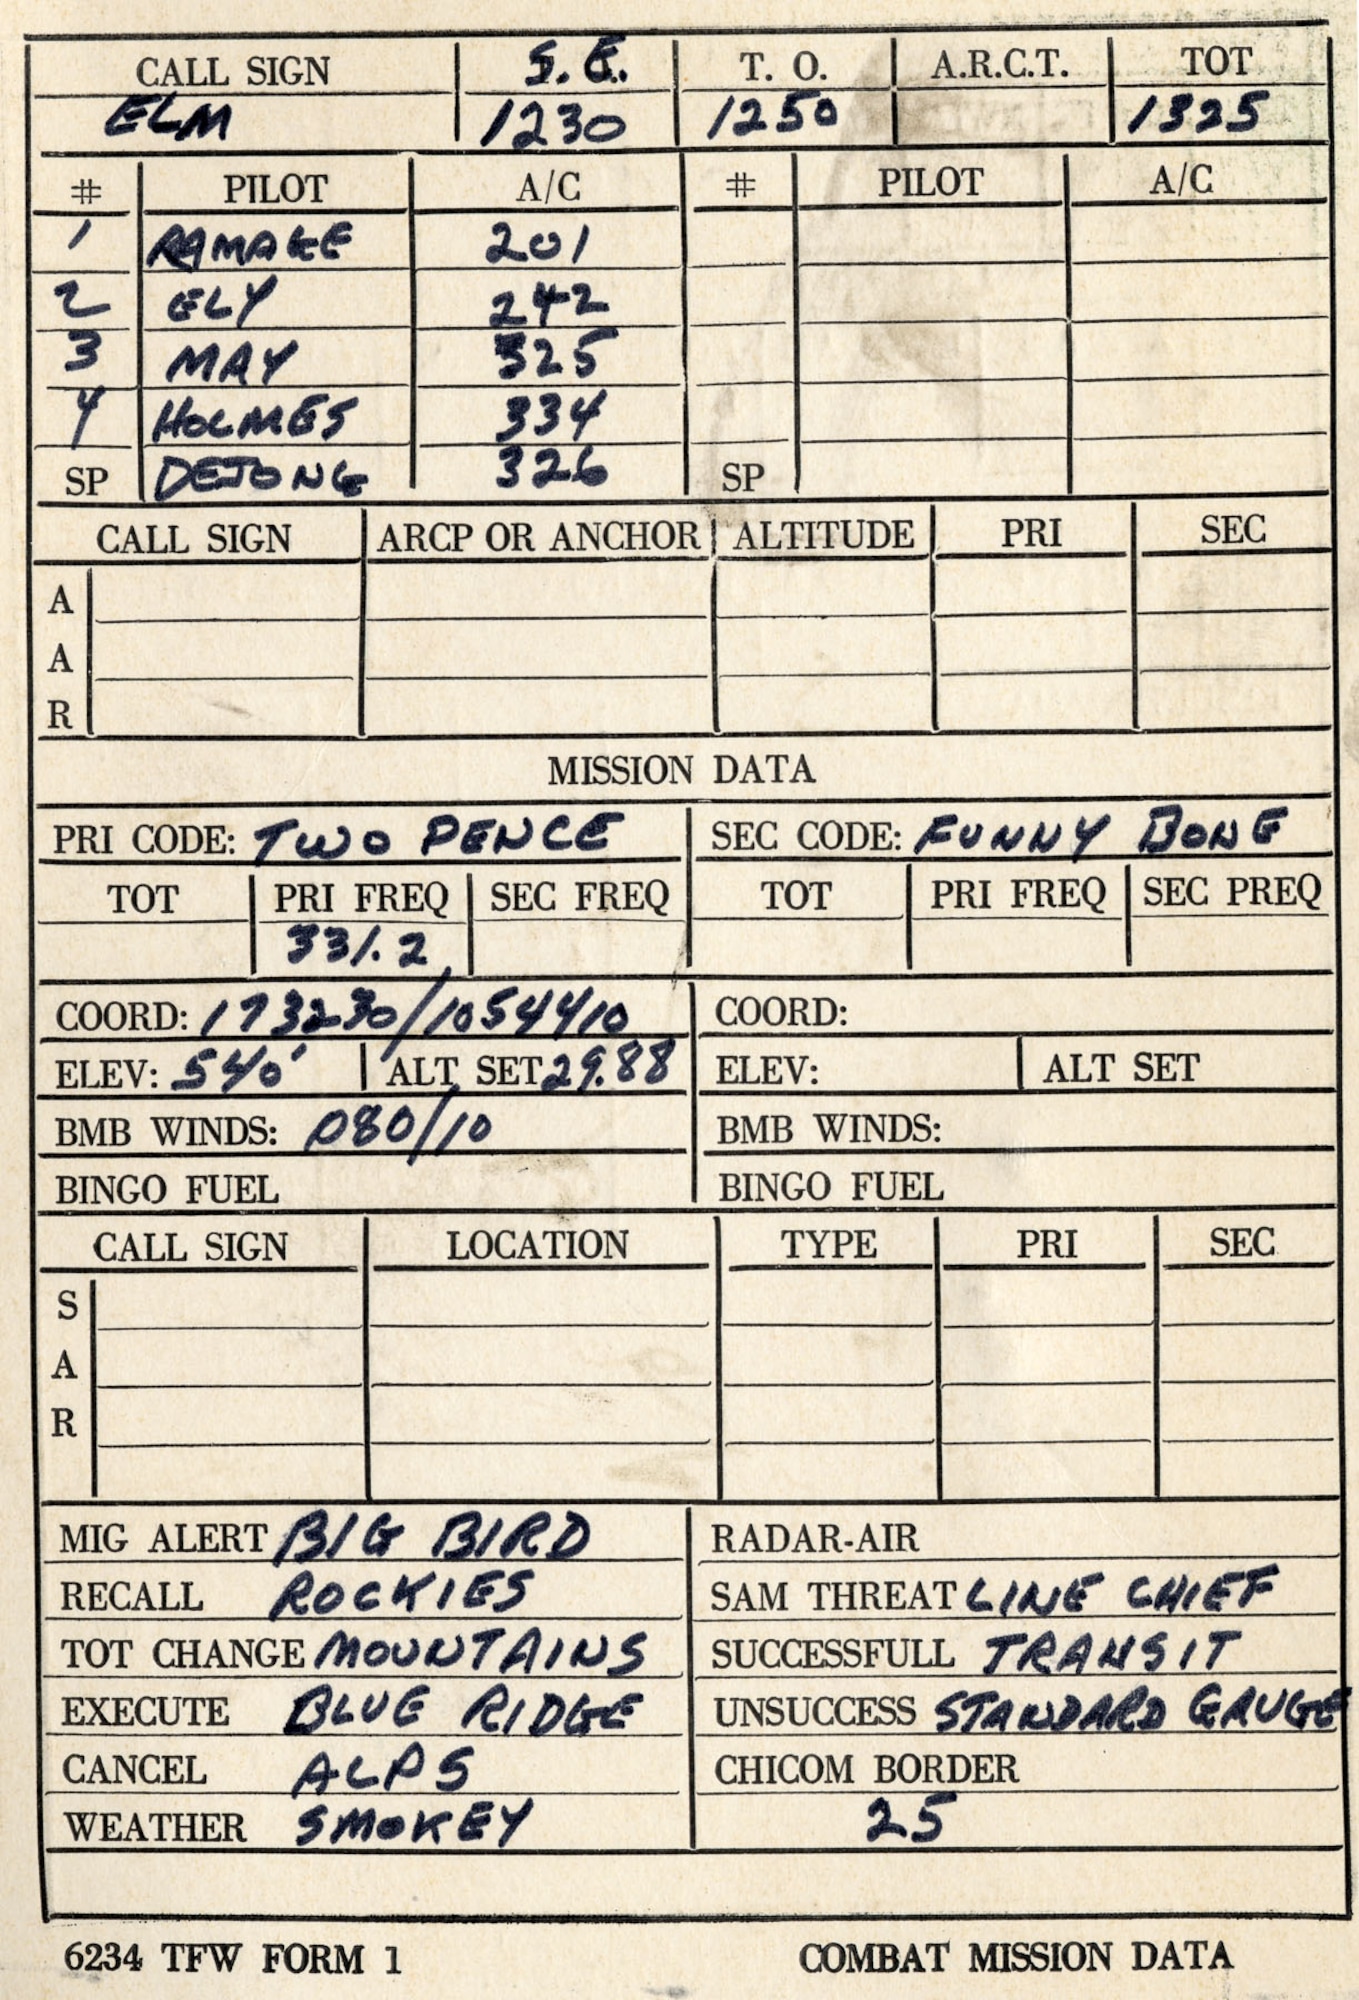 CALL SIGN S.E. T. O. A.R.C.T. TOT
ELM 1230 1250 1325
# PILOT A/C # PILOT A/C
1 RAMAGE 201
2 ELY 242
3 MAY 325
4 HOLMES 334
SP DEJONG 326 SP
CALL SIGN ARCP OR ANCHOR ALTITUDE PRI SEC
A
A
R
MISSION DATA
PRI CODE: TWO PENCE SEC CODE: FUNNY BONE
TOT PRI FREQ SEC FREQ TOT PRI FREQ SEC PREQ
331.2
COORD: 173230/1054410 COORD:
ELEV: 540' ALT SET 29.88 ELEV: ALT SET
BMB WINDS: 080/10 BMB WINDS:
BINGO FUEL BINGO FUEL
CALL SIGN LOCATION TYPE PRI SEC
S
A
R
MIG ALERT BIG BIRD RADAR-AIR
RECALL ROCKIES SAM THREAT LINE CHIEF
TOT CHANGE MOUNTAINS SUCCESSFULL TRANSIT
EXECUTE BLUE RIDGE UNSUCCESS STANDARD GAUGE
CANCEL ALPS CHICOM BORDER
WEATHER SMOKEY 25
6234 TFW FORM 1 COMBAT MISSION DATA